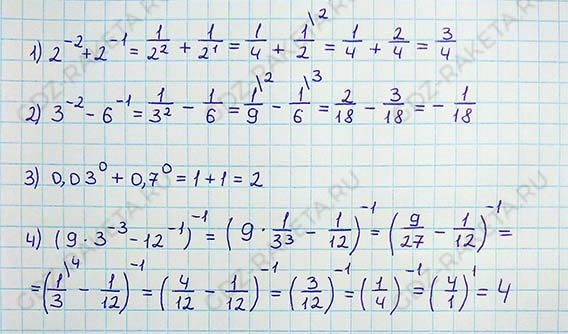 1) 2⁻² + 2⁻¹ = 1/2² + 1/2¹ = 1/4 + 1/2\² = 1/4 + 2/4 = 3/4
2) 3⁻² - 6⁻¹ = 1/3² - 1/6 = 1\²/9 - 1\³/6 = 2/18 - 3/18 = - 1/18
3) 0,03⁰ + 0,7⁰ = 1 + 1 = 2
4) (9 · 3⁻³ - 12⁻¹)⁻¹ = (9 · 1/3³ - 1/12)⁻¹ = (9/27 - 1/12)⁻¹ =
= (1\⁴/3 - 1/12)⁻¹ = (4/12 - 1/12)⁻¹ = (3/12)⁻¹ = (1/4)⁻¹ = (4/1)¹ = 4
GDZ-RAKETA.RU